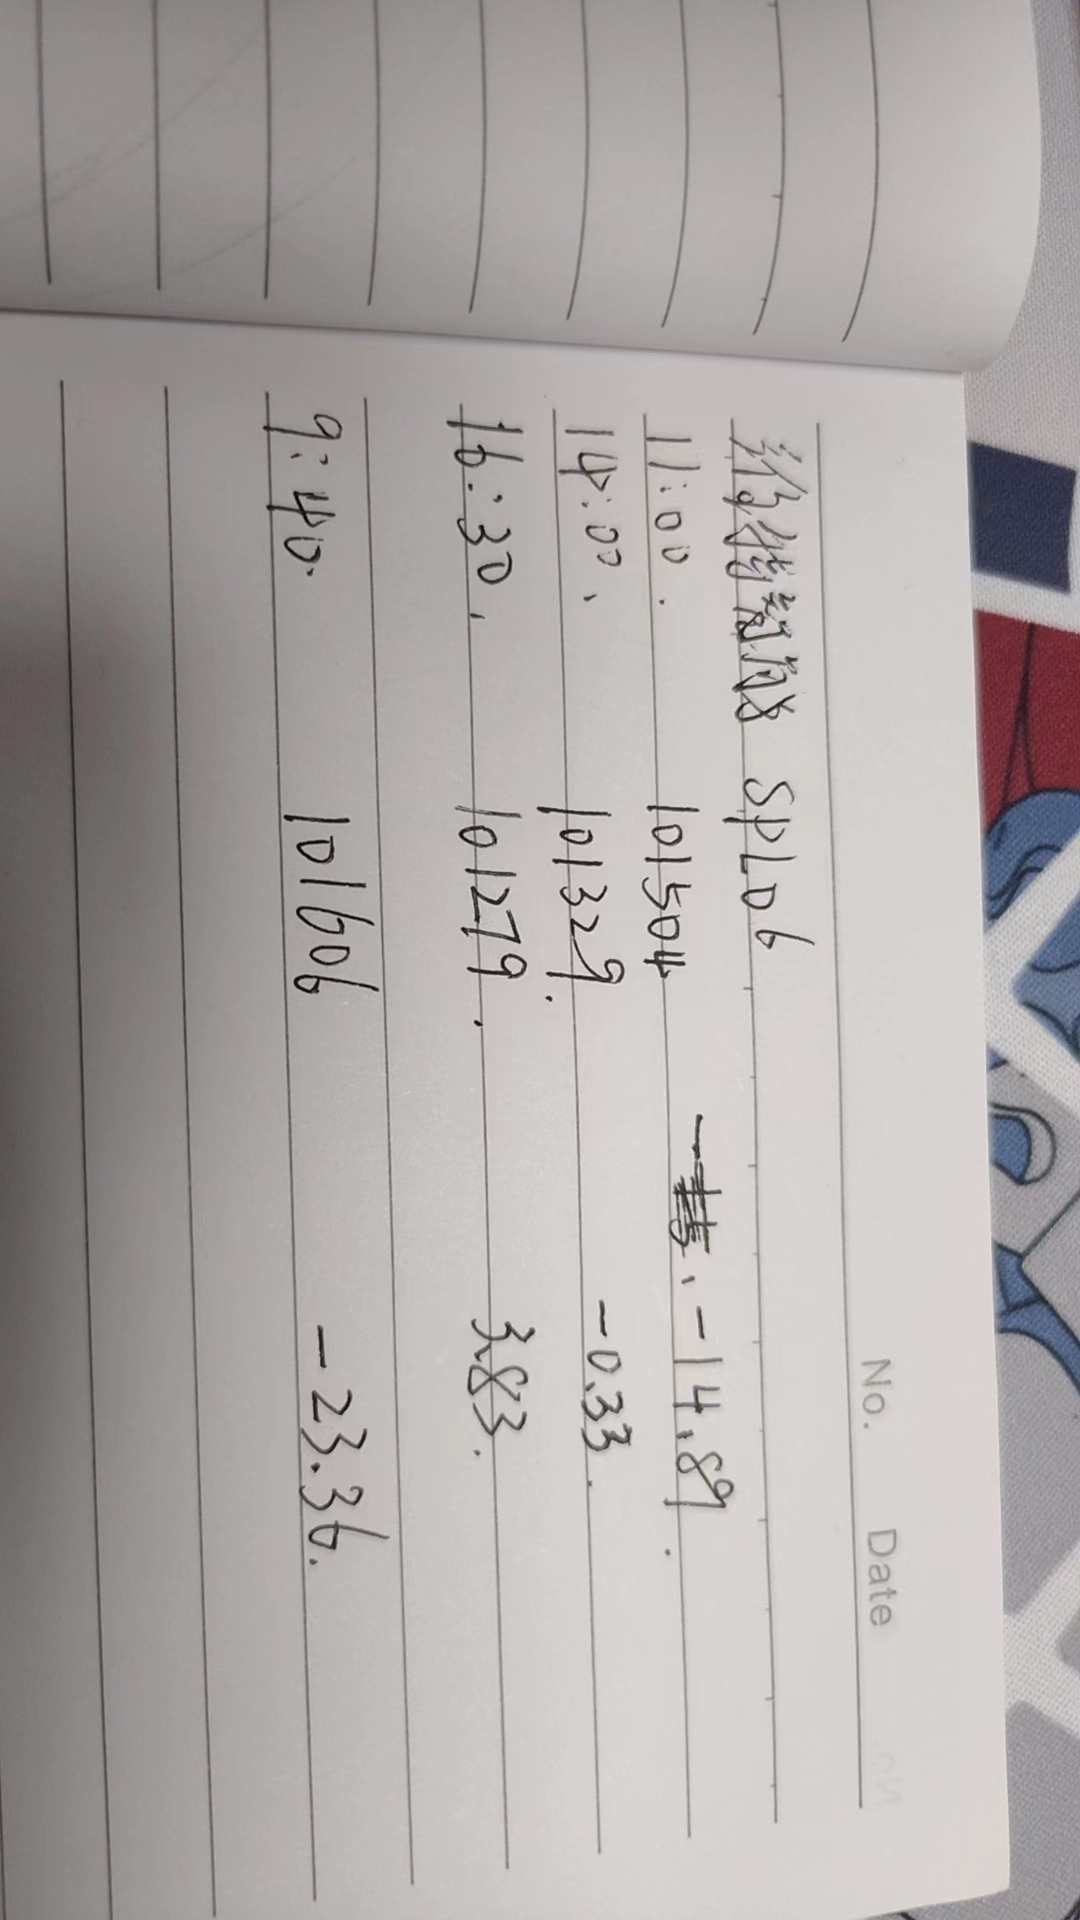 No. Date
SPL06
11:00. 101504 -14.89.
14:00、 101329. -0.33.
16:30, 101279. 3.83.
9:40. 101606 -23.36.